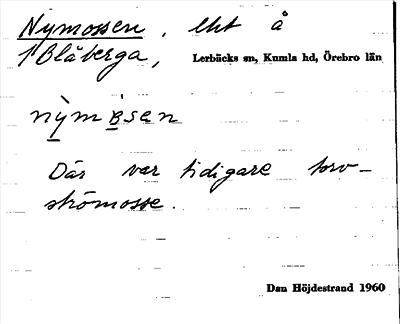 Nymossen, lht å
1 Blåberga, Lerbäcks sn, Kumla hd, Örebro län
nỳmɔ̀sen
Där var tidigare torv-
strömosse.
Dan Höjdestrand 1960